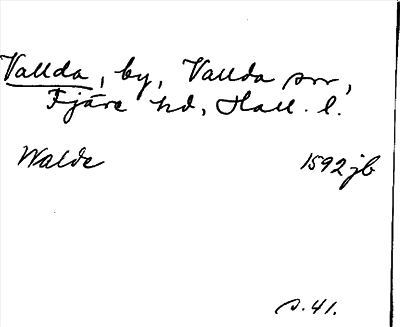 Vallda, by, Vallda sn,
Fjäre hd, Hall. l.
Walde 1592 jb
s. 41.